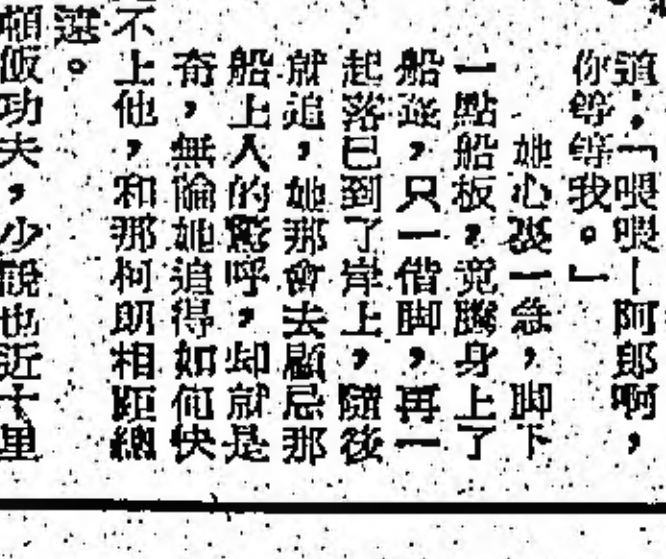 道：「喂喂！阿郎啊，
你等等我。」
她心裏一急，脚下
一點船板，竟騰身上了
船篷，只一借脚，再一
起落已到了岸上，隨後
就追，她那會去顧忌那
船上人的驚呼，却就是
奇，無論她追得如何快
不上他，和那柯郎相距總
遠。
頓飯功夫，少說也近十里